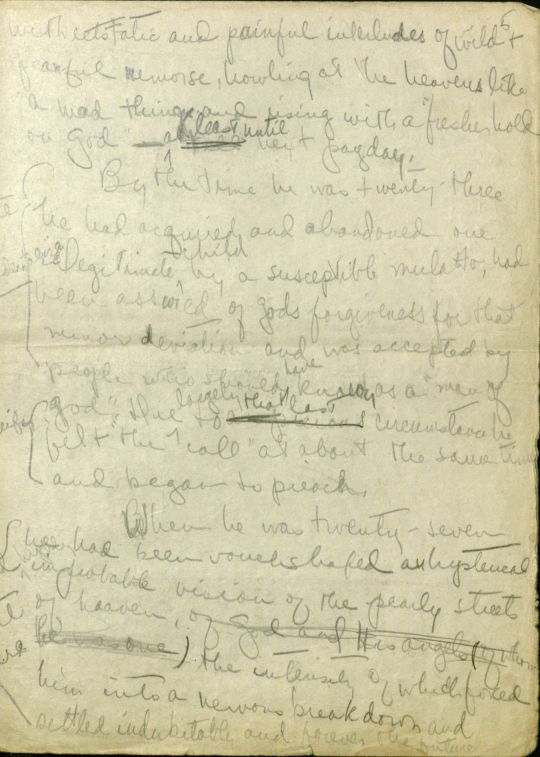 5
with ecstatic and painful interludes of wild +
fearful remorse, howling at the heavens like
"a mad thing and rising with a "fresher hold
on God" — at least until next payday.
By the time he was twenty-three
he had acquired and abandoned one
illegitimate child by a susceptible mulatto, had
been assured of gods forgiveness for that
minor deviation and was accepted by
people who should have known as a "man of
god", due largely to that last circumstance he
felt "the call" at about the same time
and began to preach.
When he was twenty-seven
he had been vouchsafed an hysterical
improbable vision of the pearly streets
of heaven, of God and His angels (of whom
he was one) the intensity of which forced
him into a nervous breakdown and
settled indubitable and forever the future